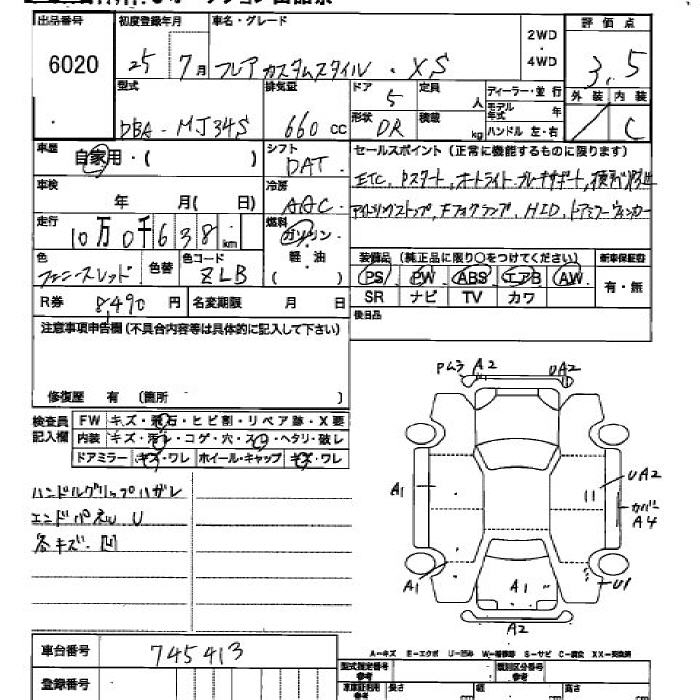 出品番号 初度登録年月 車名・グレード 2WD ・ 4WD 評価点
6020 25年 7月 フレア カスタムスタイル・XS 3.5
型式 排気量 ドア 5 定員 人 ディーラー・並行 外装 内装
DBA-MJ34S 660cc 形状 DR 積載 kg モデル年式 年 ハンドル 左・右 C
車歴 自家用・( ) シフト DAT セールスポイント (正常に機能するものに限ります)
車検 年 月( 日) 冷房 AAC ETC, Pスタート, オートライト, ブレーキサポート,
走行 10万0千638km 燃料 ガソリン 軽・油 ( ) アイドリングストップ, フォグランプ, HID, ドアミラーウィンカー
色 色替 色コード ZLB 装備品 (純正品に限り○をつけてください) 新車保証書
PS PW ABS エアB AW 有・無
R券 8,490円 名変期限 月 日 SR ナビ TV カワ
注意事項申告欄(不具合内容等は具体的に記入して下さい) 後日品
修復歴 有 (箇所 )
検査員記入欄 FW キズ・飛石・ヒビ割・リペア跡・X要
内装 キズ・汚レ・コゲ・穴・スレ・ヘタリ・破レ
ドアミラー キズ・ワレ ホイール・キャップ キズ・ワレ
ハンドルグリップハガレ
エンドパネル U
各キズ・凹
Pムラ A2 UA2
A1 UA2
カバー A4
A1 A1 U1
A2
A-キズ E-エクボ U-凹み W-補修跡 S-サビ C-腐食 XX-交換済
車台番号 745413
型式指定番号 参考 類別区分番号 参考
登録番号 長さ cm 幅 cm 高さ cm